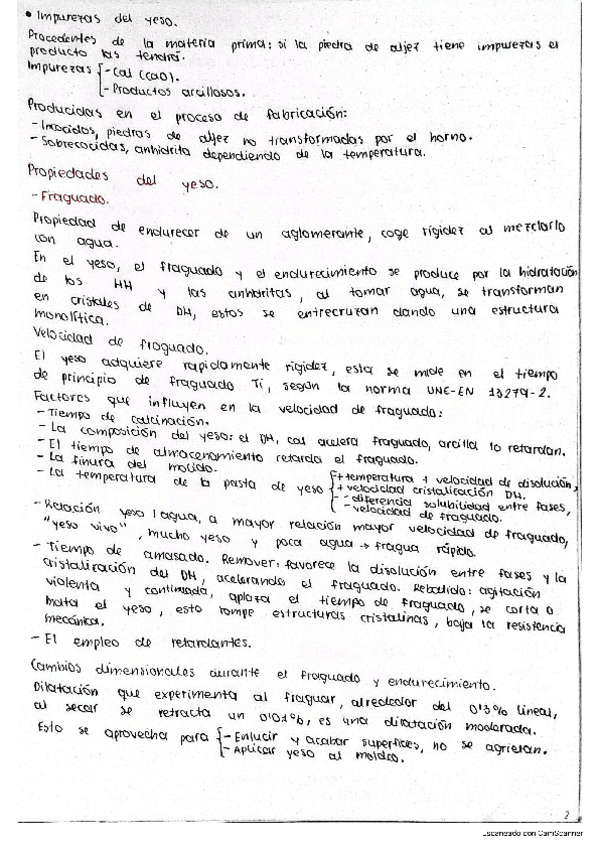 • Impurezas del yeso.
Procedentes de la materia prima: si la piedra de aljez tiene impurezas el
producto las tendrá.
Impurezas {- Cal (CaO).
- Productos arcillosos.
Producidas en el proceso de fabricación:
- Incocidos, piedras de aljez no transformadas por el horno.
- Sobrecocidas, anhidrita dependiendo de la temperatura.
Propiedades del yeso.
- Fraguado.
Propiedad de endurecer de un aglomerante, coge rigidez al mezclarlo
con agua.
En el yeso, el fraguado y el endurecimiento se produce por la hidratación
de los HH y las anhidritas, al tomar agua, se transforman
en cristales de DH, estos se entrecruzan dando una estructura
monolítica.
Velocidad de fraguado.
El yeso adquiere rapidamente rigidez, esta se mide en el tiempo
de principio de fraguado Ti, según la norma UNE-EN 13279-2.
Factores que influyen en la velocidad de fraguado:
- Tiempo de calcinación.
- La composición del yeso: el DH, cal acelera fraguado, arcilla lo retardan.
- El tiempo de almacenamiento retarda el fraguado.
- La finura del molido.
- La temperatura de la pasta de yeso {+ temperatura + velocidad de disolución,
+ velocidad cristalización DH.
- diferencia solubilidad entre fases,
- velocidad de fraguado.
- Relación yeso/agua, a mayor relación mayor velocidad de fraguado,
"yeso vivo", mucho yeso y poca agua → fragua rápido.
- Tiempo de amasado. Remover: favorece la disolución entre fases y la
cristalización del DH, acelerando el fraguado. Rebatido: agitación
violenta y continuada, aplaza el tiempo de fraguado, se corta o
mata el yeso, esto rompe estructuras cristalinas, baja la resistencia
mecánica.
- El empleo de retardantes.
Cambios dimensionales durante el fraguado y endurecimiento.
Dilatación que experimenta al fraguar, alrededor del 0'3% lineal,
al secar se retracta un 0'01%, es una dilatación moderada.
Esto se aprovecha para {- Enlucir y acabar superficies, no se agrietan.
- Aplicar yeso al moldeo.
2
Escaneado con CamScanner